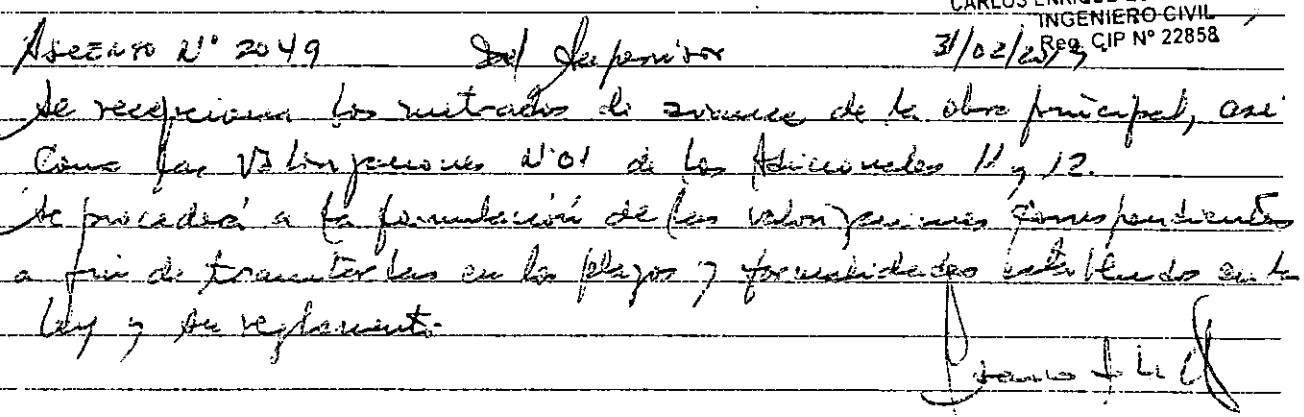 CARLOS ENRIQUE
INGENIERO CIVIL
Reg. CIP N° 22858
Asiento N° 2049 Del Supervisor 31/02/
Se recepciona los metrados de avance de la obra principal, asi
como las Valorizaciones N°01 de los Adicionales 11 y 12.
Se procederá a la formulación de las valorizaciones correspondientes
a fin de tramitarlas en los plazos y formalidades establecidos en la
ley y su reglamento.